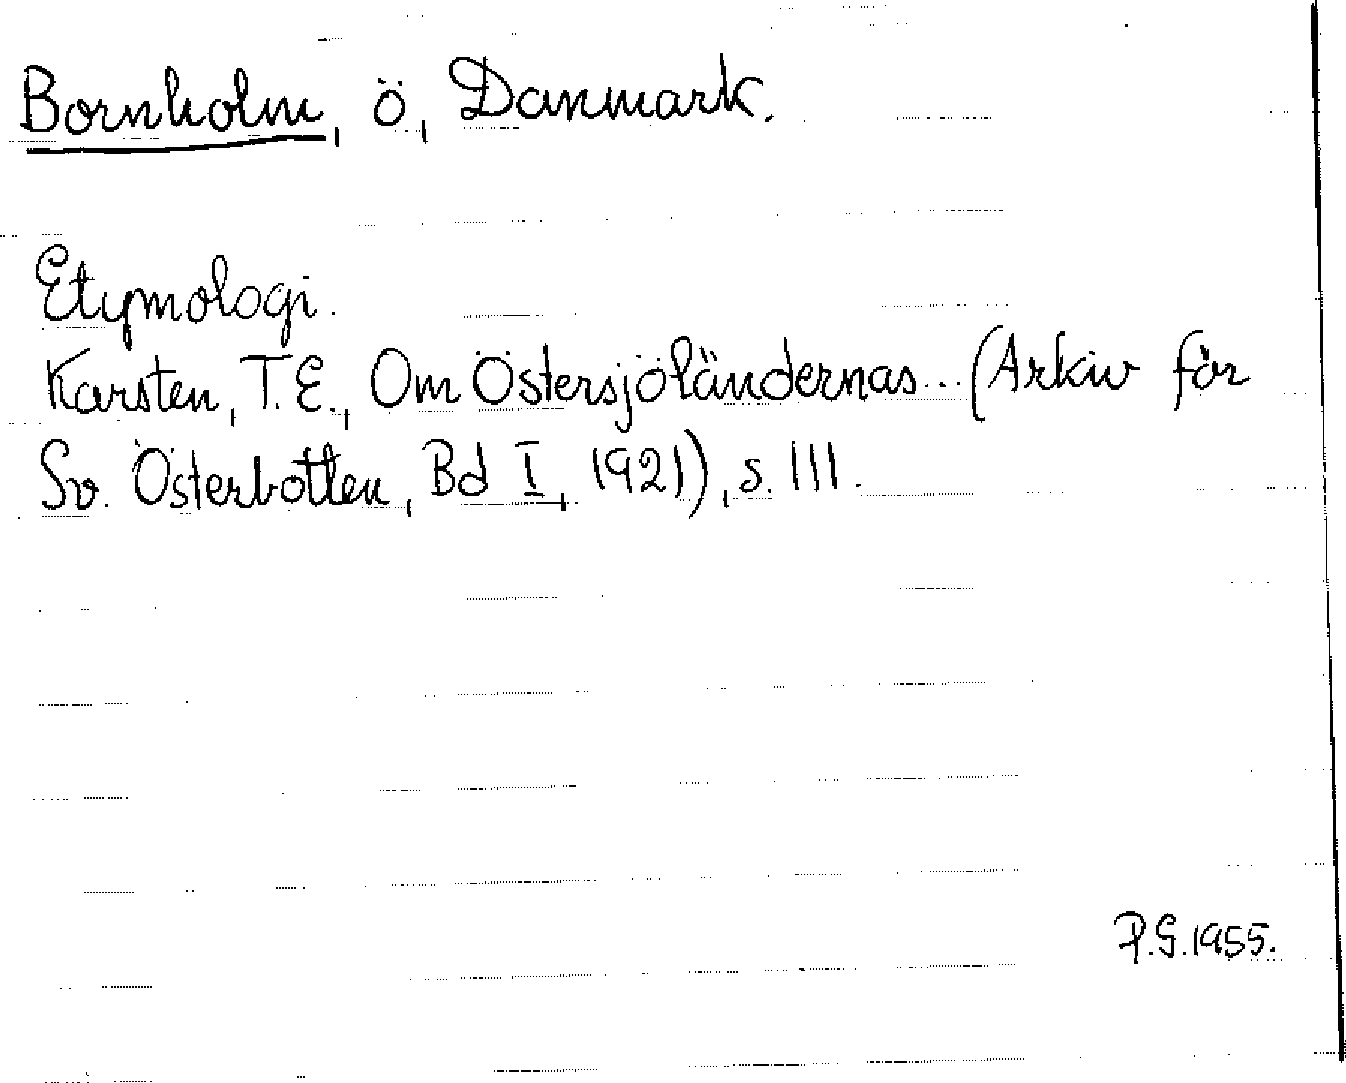 Bornholm, ö, Danmark.
Etymologi.
Karsten, T.E., Om Östersjöländernas... (Arkiv för
Sv. Österbotten, Bd I, 1921), s. 111.
P.G.1955.